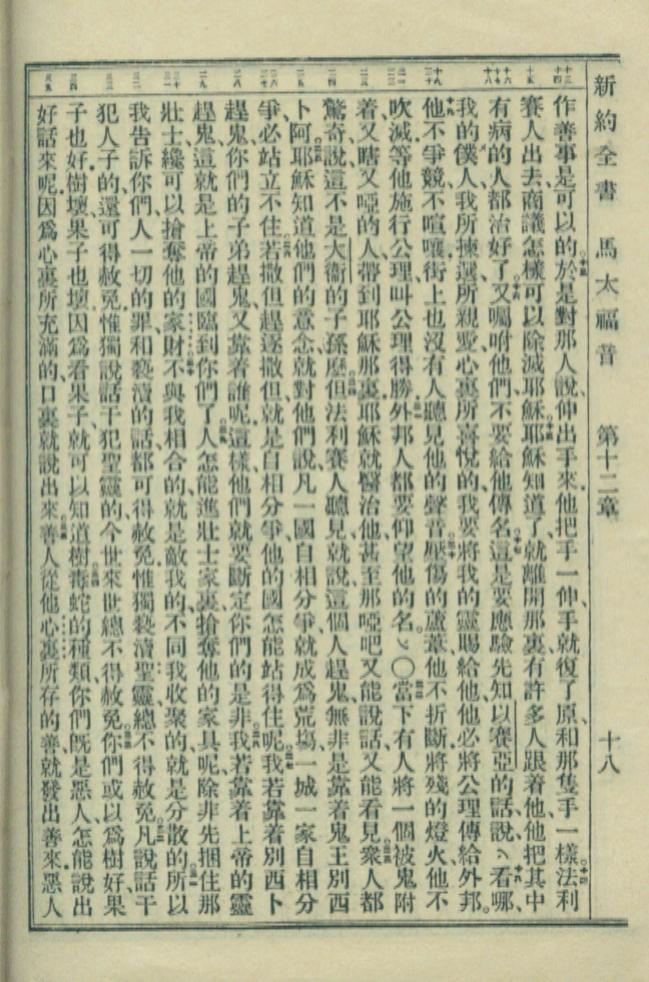 新約全書 馬太福音 第十二章 十八
作善事是可以的於是對那人說伸出手來他把手一伸手就復了原和那隻手一樣法利
賽人出去商議怎樣可以除滅耶穌耶穌知道了就離開那裏有許多人跟着他他把其中
有病的人都治好了又囑咐他們不要給他傳名這是要應驗先知以賽亞的話說看哪
我的僕人我所揀選所親愛心裏所喜悅的我要將我的靈賜給他他必將公理傳給外邦
他不爭競不喧嚷街上也沒有人聽見他的聲音壓傷的蘆葦他不折斷將殘的燈火他不
吹滅等他施行公理叫公理得勝外邦人都要仰望他的名〇當下有人將一個被鬼附
着又瞎又啞的人帶到耶穌那裏耶穌就醫治他甚至那啞吧又能說話又能看見衆人都
驚奇說這不是大衞的子孫麼但法利賽人聽見就說這個人趕鬼無非是靠着鬼王別西
卜阿耶穌知道他們的意念就對他們說凡一國自相分爭就成爲荒場一城一家自相分
爭必站立不住若撒但趕逐撒但就是自相分爭他的國怎能站得住呢我若靠着別西卜
趕鬼你們的子弟趕鬼又靠着誰呢這樣他們就要斷定你們的是非我若靠着上帝的靈
趕鬼這就是上帝的國臨到你們了人怎能進壯士家裏搶奪他的家具呢除非先捆住那
壯士纔可以搶奪他的家財不與我相合的就是敵我的不同我收聚的就是分散的所以
我告訴你們人一切的罪和褻瀆的話都可得赦免惟獨褻瀆聖靈總不得赦免凡說話干
犯人子的還可得赦免惟獨說話干犯聖靈的今世來世總不得赦免你們或以爲樹好果
子也好樹壞果子也壞因爲看果子就可以知道樹毒蛇的種類你們旣是惡人怎能說出
好話來呢因爲心裏所充滿的口裏就說出來善人從他心裏所存的善就發出善來惡人